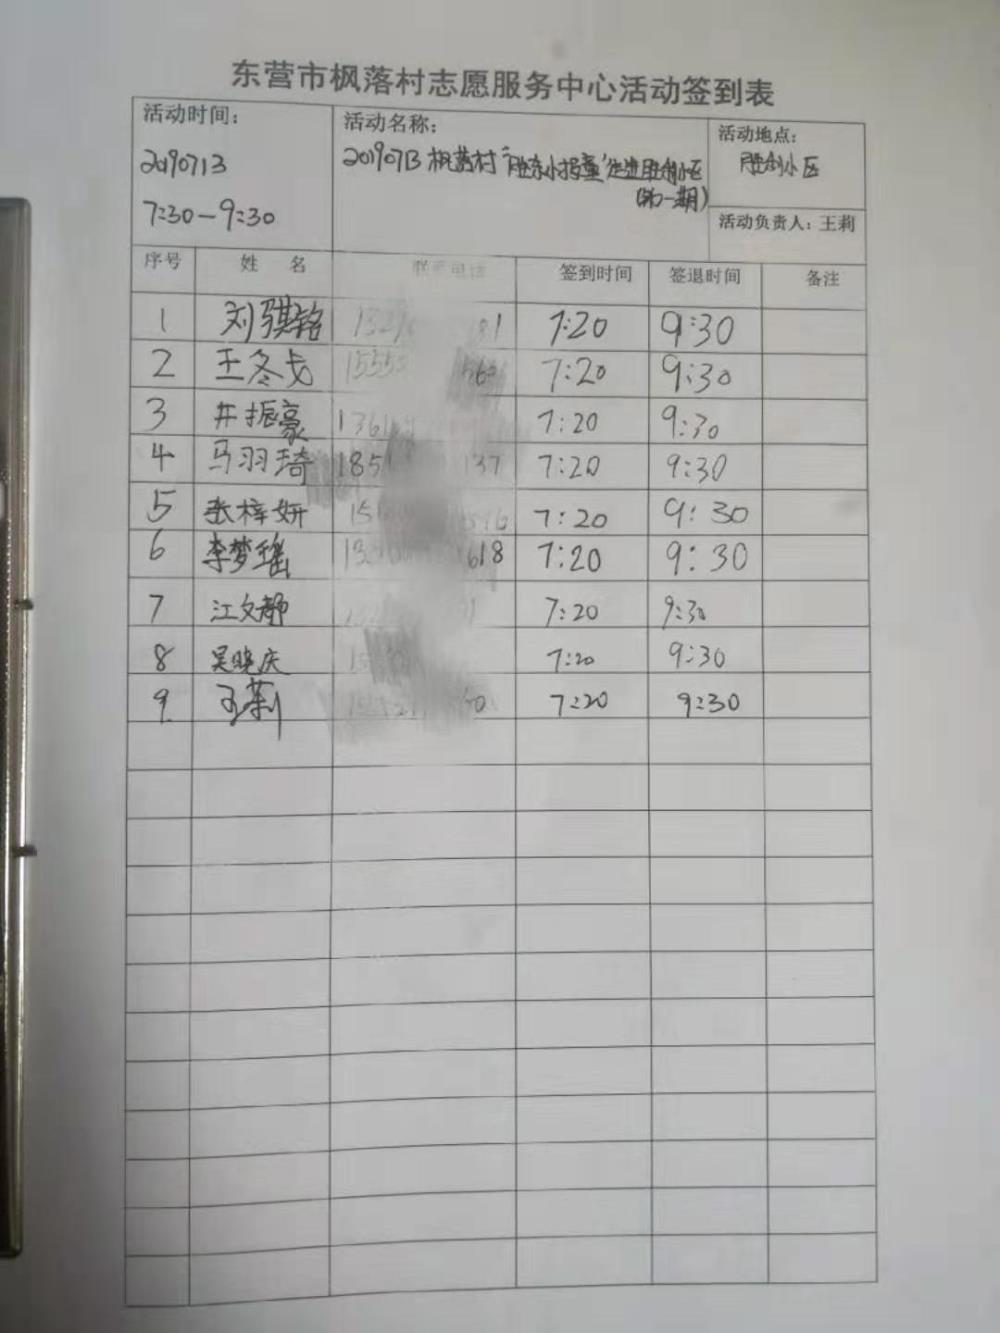 东营市枫落村志愿服务中心活动签到表
活动时间：
20190713
7:30—9:30
活动名称：
20190713 枫落村"胜东小报童"走进胜利小区
（第一期）
活动地点：
胜利小区
活动负责人：王莉
序号 姓 名 联系电话 签到时间 签退时间 备注
1 刘骐铭 7:20 9:30
2 王冬戈 7:20 9:30
3 井振豪 7:20 9:30
4 马羽琦 7:20 9:30
5 张梓妍 7:20 9:30
6 李梦瑶 618 7:20 9:30
7 江文静 7:20 9:30
8 吴晓庆 7:20 9:30
9 王莉 7:20 9:30